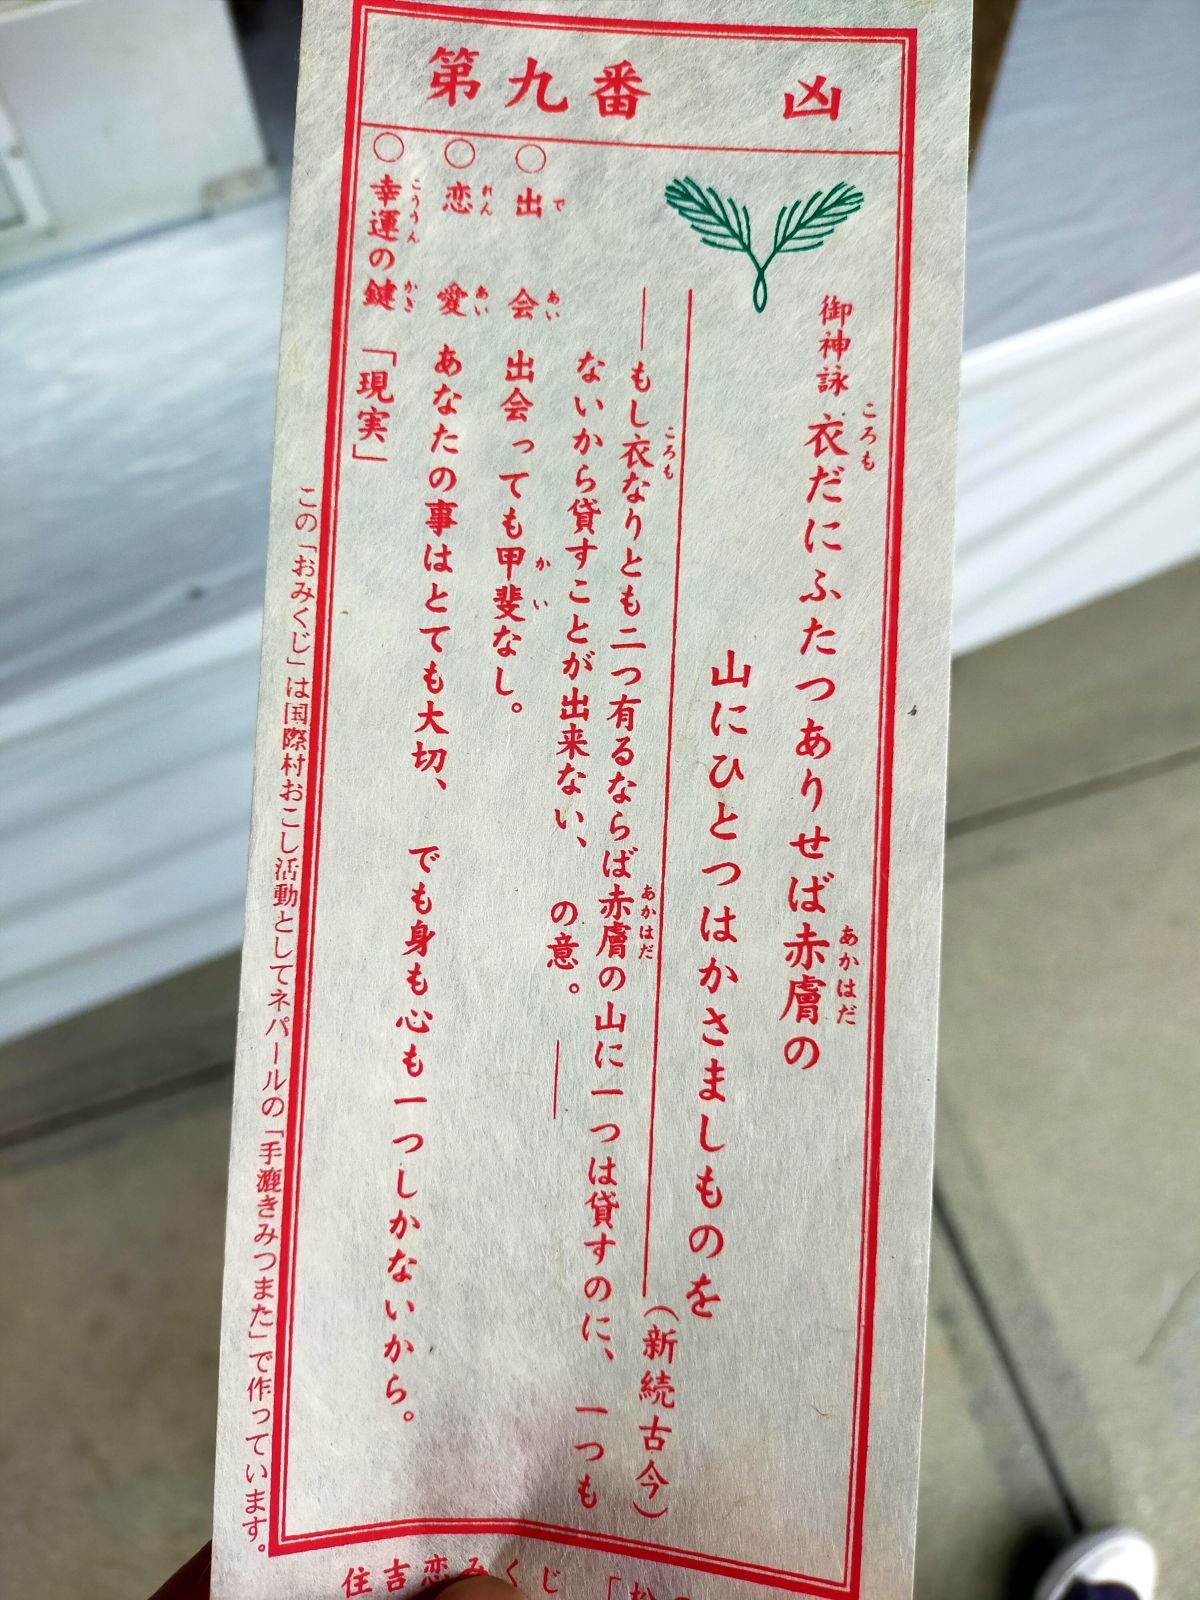 第九番　凶
御神詠 衣だにふたつありせば赤膚の
ころも
あかはだ
山にひとつはかさましものを
（新続古今）
もし衣なりとも二つ有るならば赤膚の山に一つは貸すのに、一つも
ころも
あかはだ
ないから貸すことが出来ない、の意。
○出会 出会っても甲斐なし。
で
あい
かい
○恋愛 あなたの事はとても大切、でも身も心も一つしかないから。
れん
あい
○幸運の鍵 「現実」
こううん
かぎ
この「おみくじ」は国際村おこし活動としてネパールの「手漉きみつまた」で作っています。
住吉恋みくじ 「松